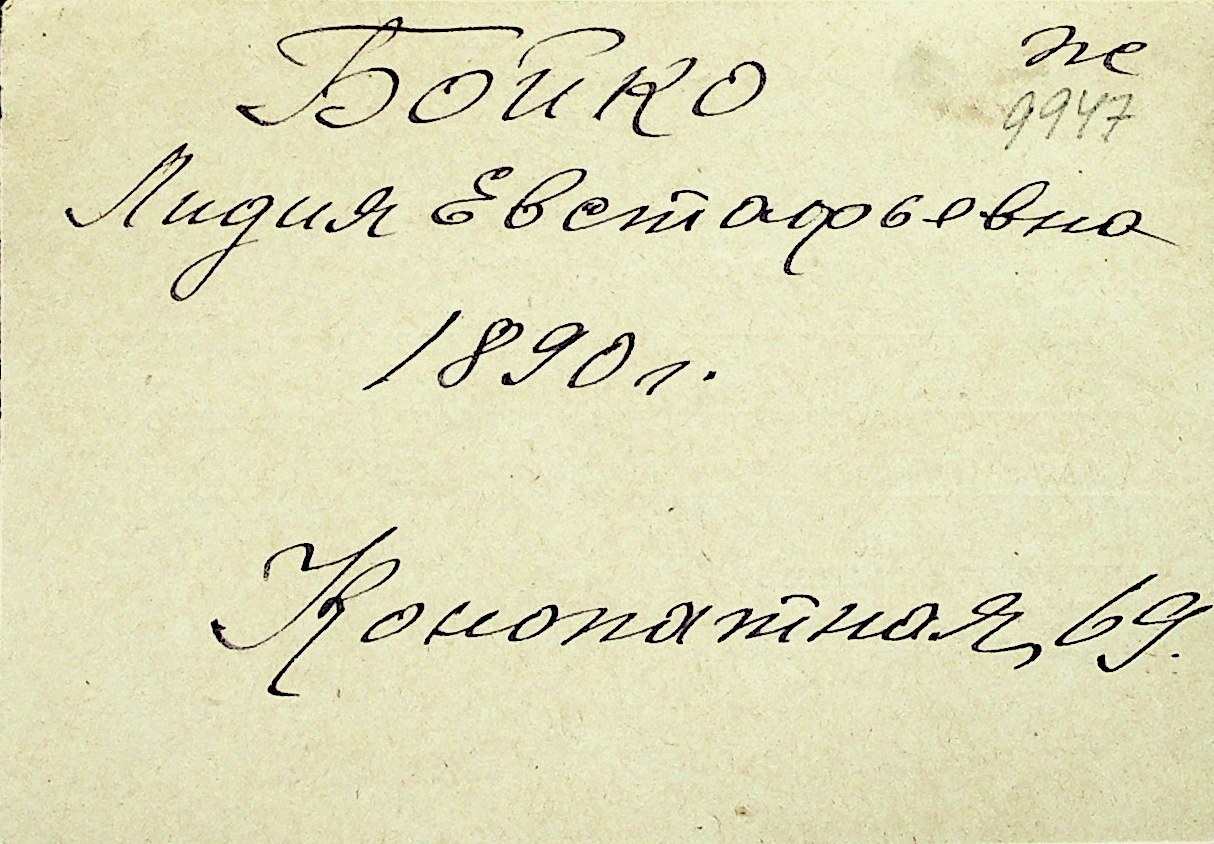 Бойко
же
9947
Лидия Евстафьевна
1890 г.
Конопатная, 69.